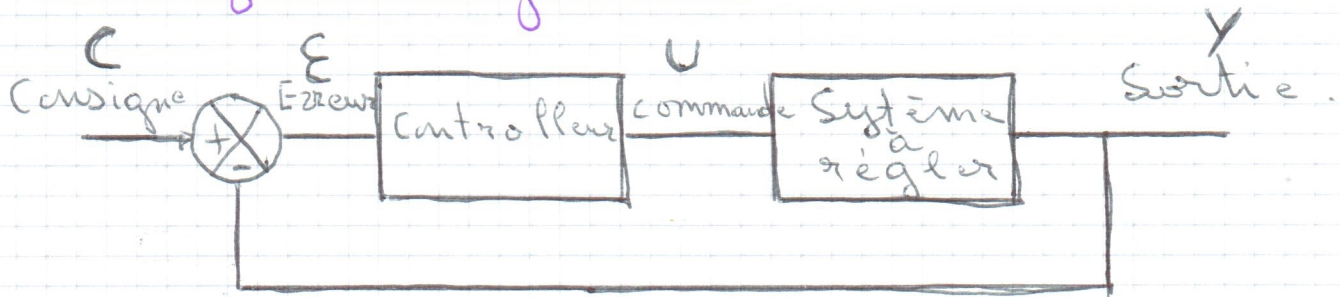 C
Consigne
+
-
Ɛ
Erreur
Controlleur
U
commande
Sytème
à
régler
Y
Sortie.